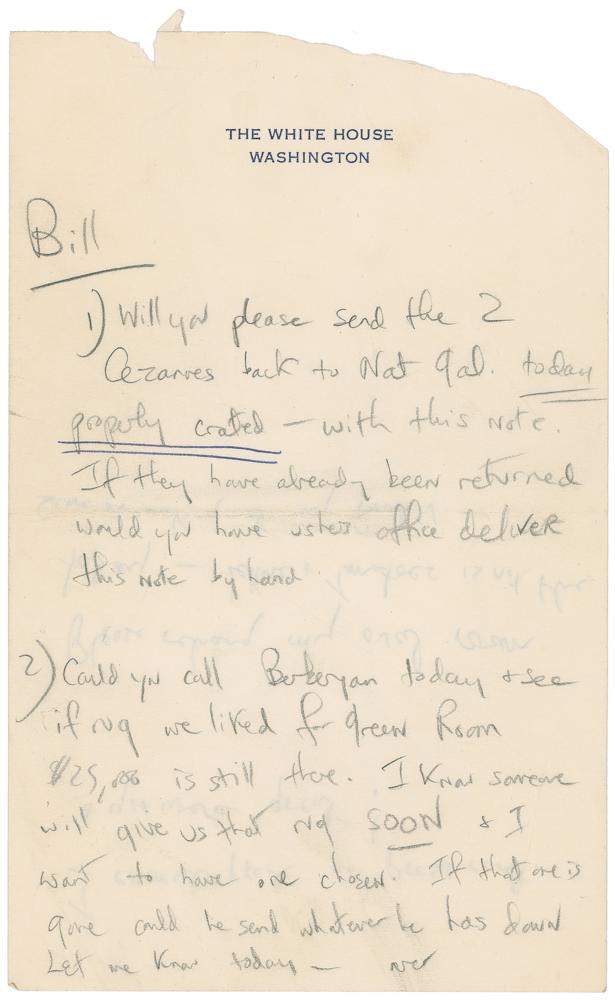 THE WHITE HOUSE
WASHINGTON
Bill
1) Will you please send the 2
Cezannes back to Nat Gal. today
properly crated — with this note.
If they have already been returned
would you have ushers office deliver
this note by hand.
2) Could you call Berberyan today + see
if rug we liked for Green Room
$25,000 is still there. I know someone
will give us that rug SOON & I
want to have one chosen. If that one is
gone could he send whatever he has down
Let me know today —